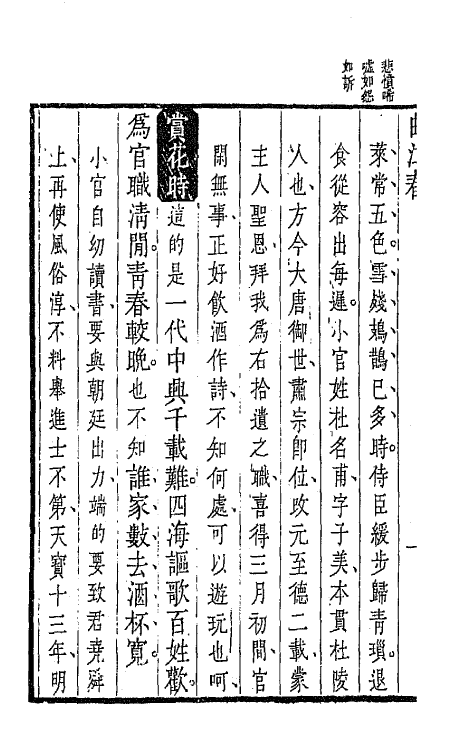 悲憤嘘
嘘如怨
如訴
曲江春
一
萊常五色雪殘鳷鵲已多時侍臣緩步歸青瑣退
食從容出每遲小官姓杜名甫字子美本貫杜陵
人也方今大唐御世肅宗即位改元至德二載蒙
主人聖恩拜我為右拾遺之職喜得三月初間官
閑無事正好飲酒作詩不知何處可以遊玩也呵
賞花時道的是一代中興千載難四海謳歌百姓歡
爲官職淸閒靑春較晩也不知誰家數去酒杯寬
小官自幼讀書要與朝廷出力端的要致君堯舜
上再使風俗淳不料舉進士不第天寶十三年明